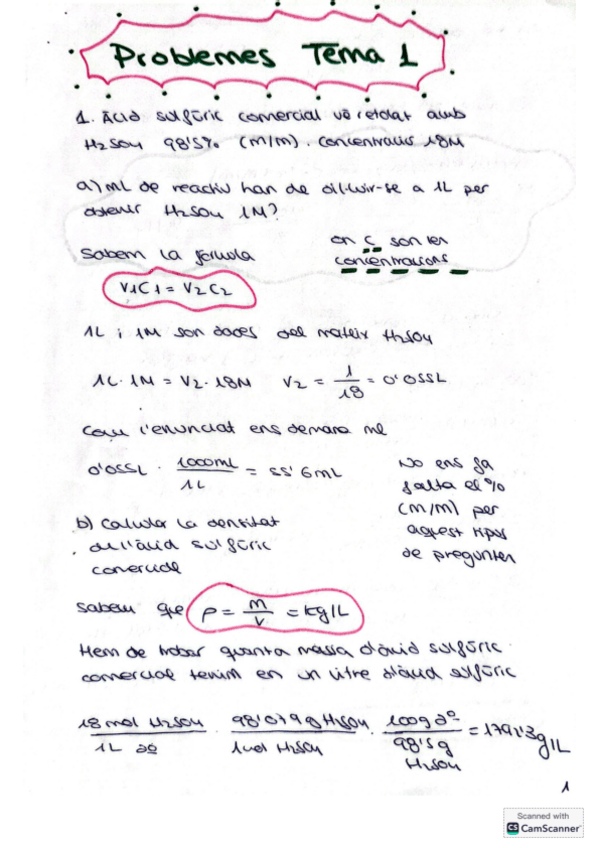 Problemes Tema 1
1. Àcid sulfúric comercial ve retolat amb
H2SO4 98'5% (m/m). Concentració 18M
a) mL de reactiu han de diluir-se a 1L per
obtenir H2SO4 1M?
Sabem la fórmula
on C són les
concentracions
V1C1 = V2C2
1L i 1M són dades del mateix H2SO4
1L · 1M = V2 · 18M V2 = 1/18 = 0'055L
Com l'enunciat ens demana ml
0'055L · 1000ml/1L = 55'6mL
No ens fa
falta el %
(m/m) per
aquest tipus
de preguntes
b) Calcular la densitat
de l'àcid sulfúric
comercial
Sabem que ρ = m/V = kg/L
Hem de trobar quanta massa d'àcid sulfúric
comercial tenim en un litre d'àcid sulfúric
18 mol H2SO4/1L · 98'079g H2SO4/1mol H2SO4 · 100g/98'5g H2SO4 = 1792'3g/L
1
Scanned with
CS CamScanner